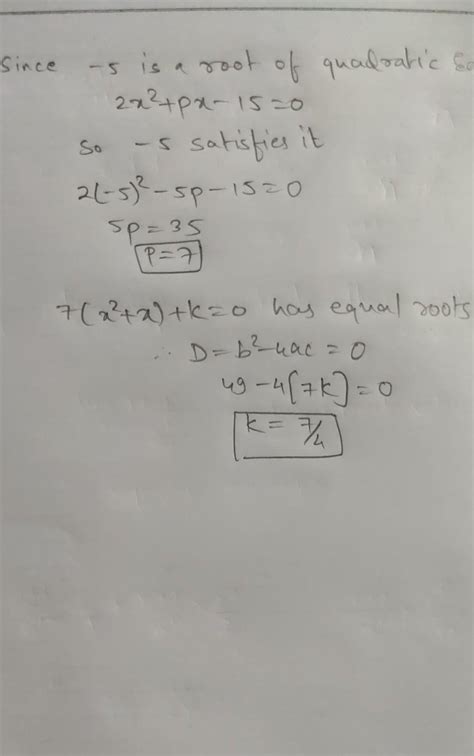 Since -5 is a root of quadratic
2x²+px-15=0
So -5 satisfies it
2(-5)²-5p-15=0
5p=35
P=7
7(x²+x)+k=0 has equal roots
∴ D=b²-4ac=0
49-4[7k]=0
k= 7/4